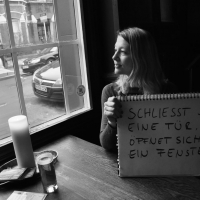 SCHLIESST
EINE TÜR
ÖFFNET SICH
EIN FENSTER